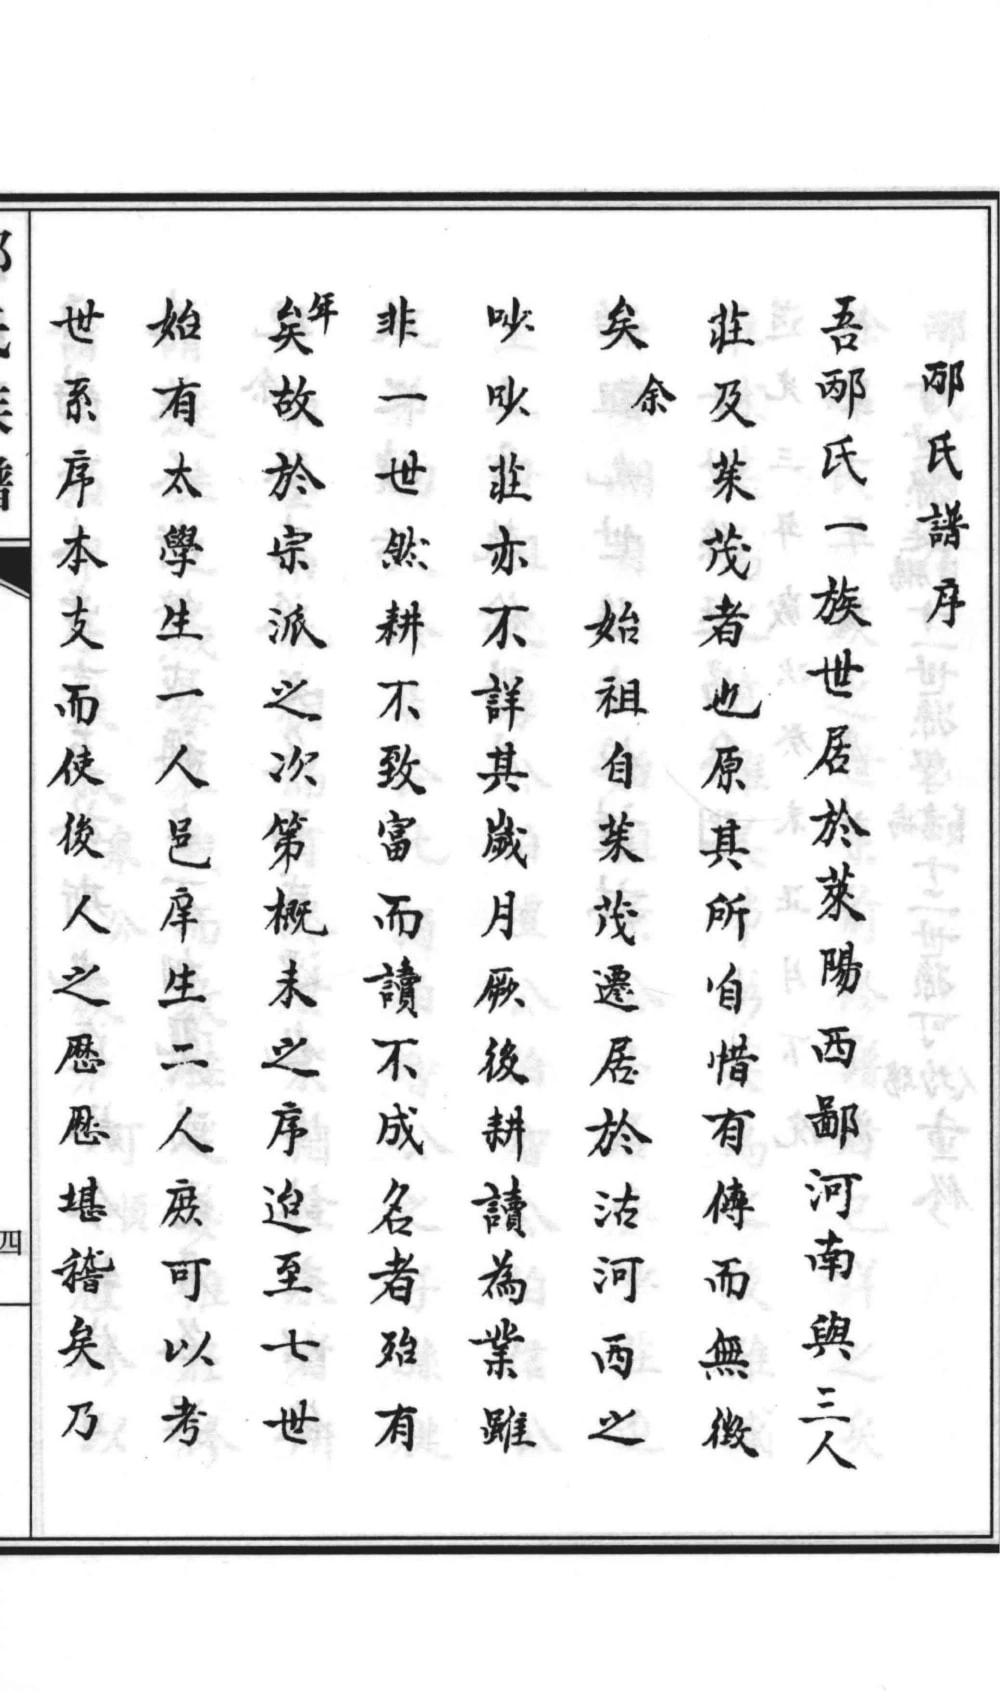 邴氏譜序
吾邴氏一族世居於萊陽西鄙河南與三人
莊及茱茂者也原其所自惜有傳而無徵
矣余始祖自茱茂遷居於沽河西之
吵吵莊亦不詳其歲月厥後耕讀為業雖
非一世然耕不致富而讀不成名者殆有
年矣故於宗派之次第概未之序迨至七世
始有太學生一人邑庠生二人庶可以考
世系序本支而使後人之歷歷堪稽矣乃
氏族譜
四